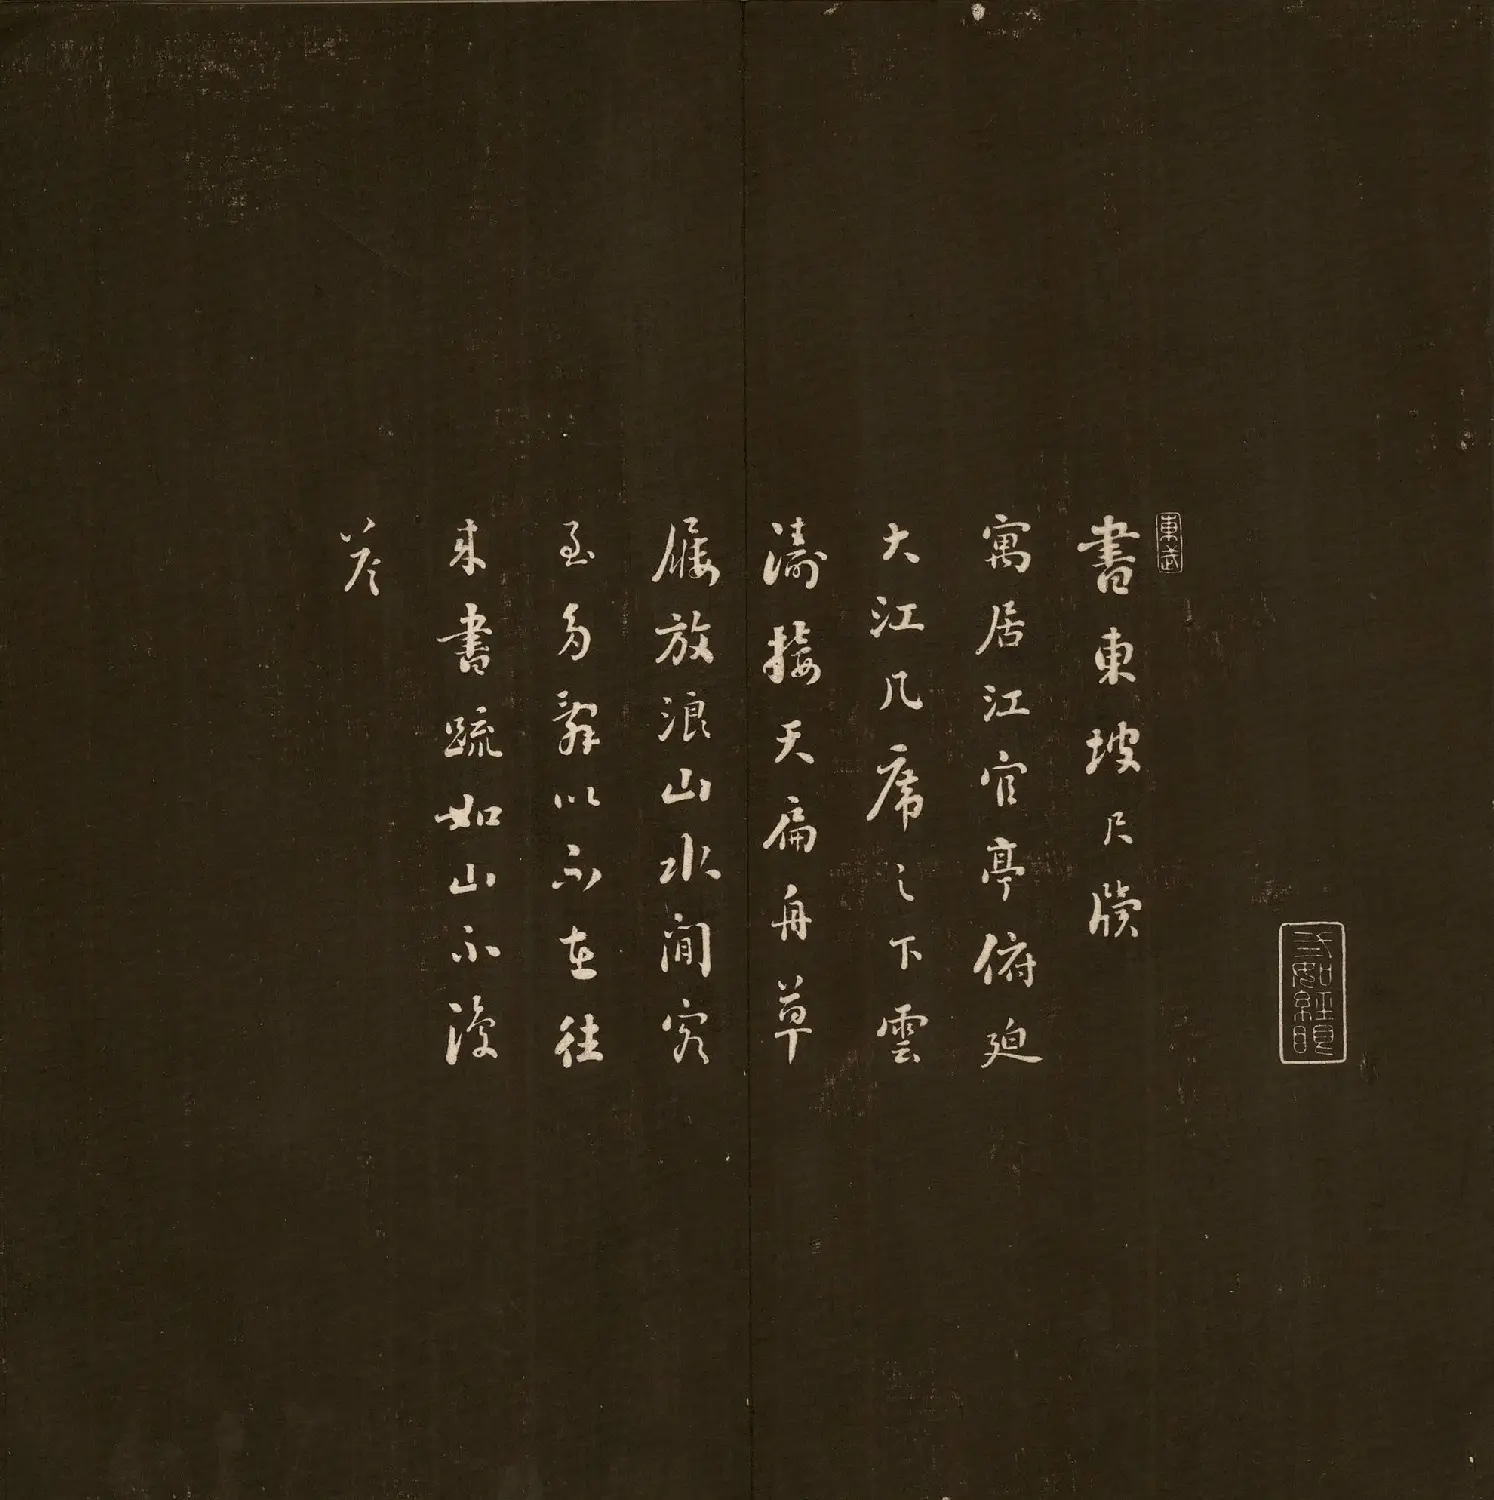 東武
書東坡尺牘
寓居江官亭俯迫
大江几席之下雲
濤接天扁舟草
屨放浪山水間客
至多辭以不在往
來書疏如山不復
答